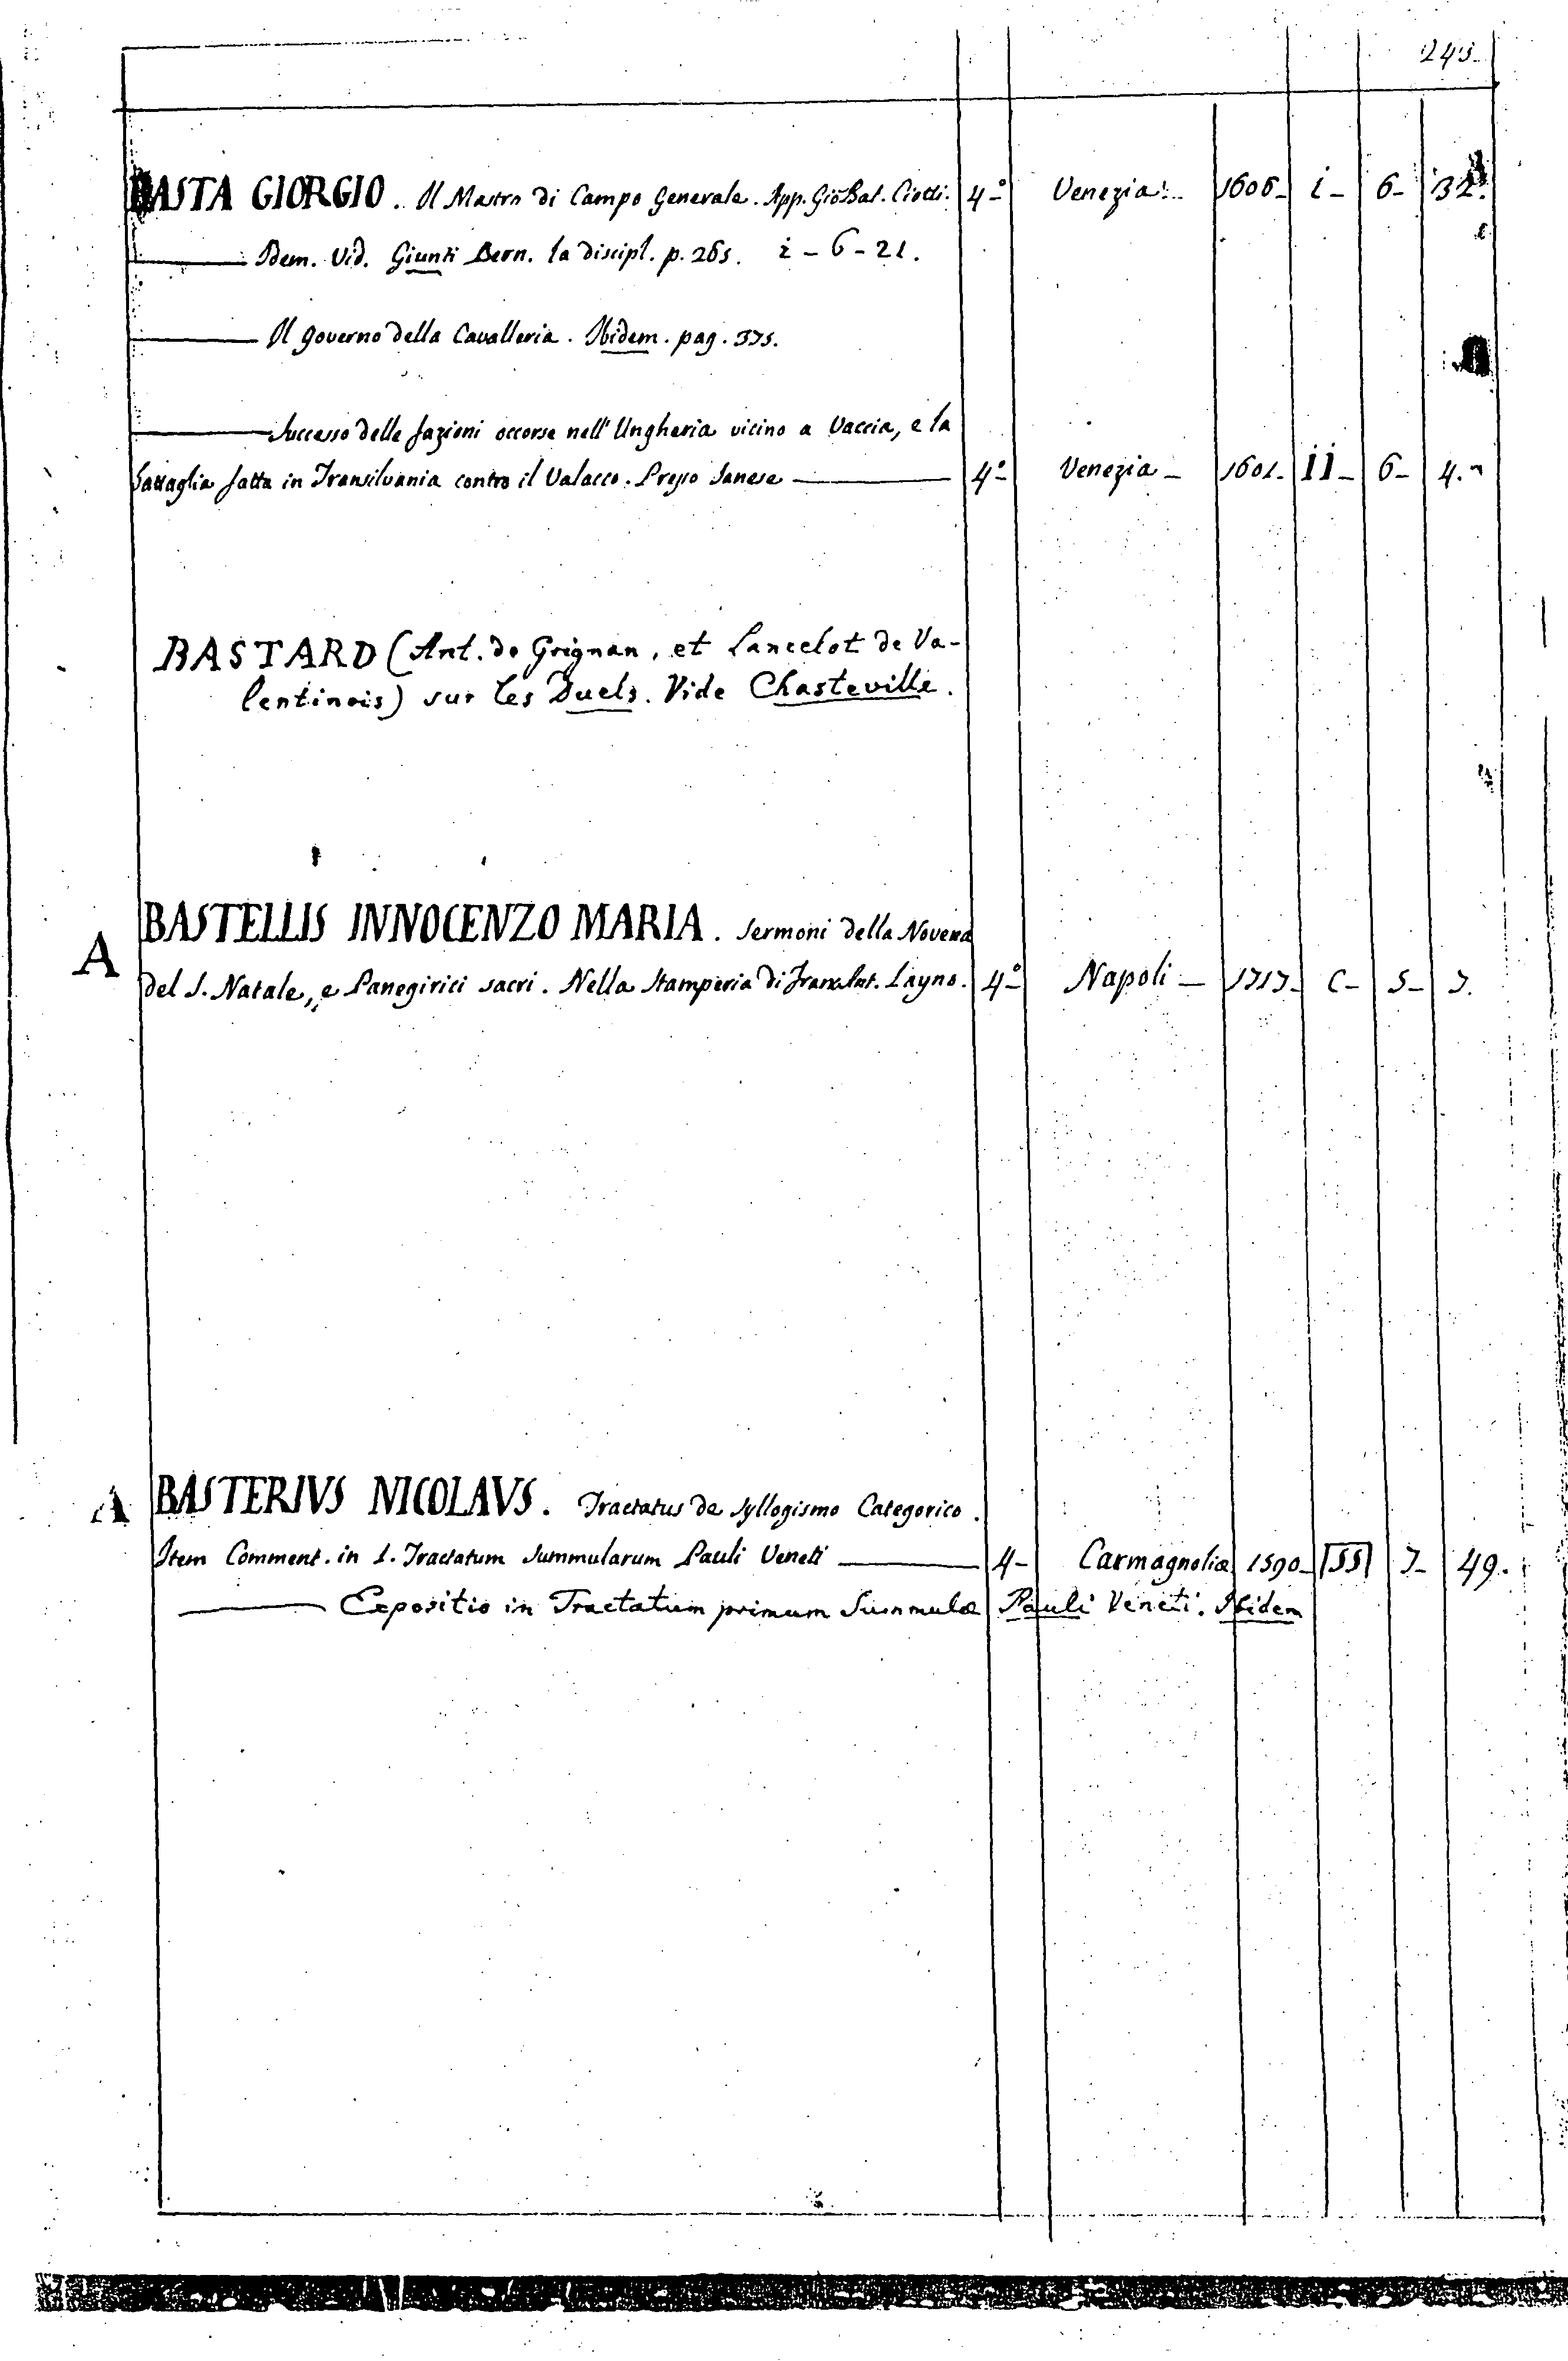 243.
BASTA GIORGIO. Il Mastro di Campo Generale. App. Gio Bat. Ciotti. 4.º Venezia. 1606. i 6 32.
Idem. Vid. Giunti Bern. la discipl. p. 265. i - 6 - 21.
Il Governo della Cavalleria. Ibidem. pag. 375.
Successo delle fazioni occorse nell'Ungheria vicino a Vaccia, e la
battaglia fatta in Transilvania contro il Valacco. Presso Sanese 4.º Venezia 1601. ii 6 4.
BASTARD (Ant. de Grignan, et Lancelot de Va-
lentinois) sur les Duels. Vide Chasteville.
BASTELLIS INNOCENZO MARIA. Sermoni della Novena
A del S. Natale, e Panegirici sacri. Nella Stamperia di Franc. Ant. Layno. 4.º Napoli 1717. C 5 7.
A BASTERIVS NICOLAVS. Tractatus de Syllogismo Categorico.
Item Comment. in 1. Tractatum Summularum Pauli Veneti 4 Carmagnoliæ 1590. SS 7 49.
Expositio in Tractatum primum Summulæ Pauli Veneti. Ibidem